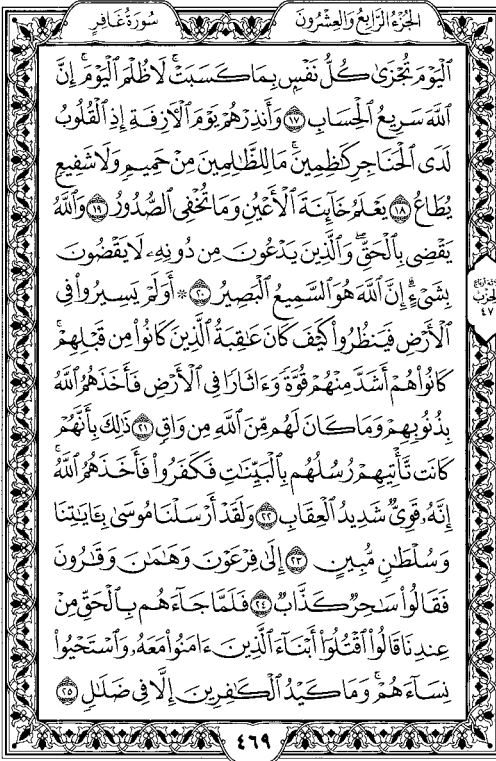 سُورَةُ غَافِرٍ
الجُزْءُ الرَّابِعُ وَالعِشْرُونَ
ٱلْيَوْمَ تُجْزَىٰ كُلُّ نَفْسٍۭ بِمَا كَسَبَتْۚ لَا ظُلْمَ ٱلْيَوْمَۚ إِنَّ
ٱللَّهَ سَرِيعُ ٱلْحِسَابِ ١٧ وَأَنذِرْهُمْ يَوْمَ ٱلْءَازِفَةِ إِذِ ٱلْقُلُوبُ
لَدَى ٱلْحَنَاجِرِ كَٰظِمِينَۚ مَا لِلظَّٰلِمِينَ مِنْ حَمِيمٍ وَلَا شَفِيعٍ
يُطَاعُ ١٨ يَعْلَمُ خَآئِنَةَ ٱلْأَعْيُنِ وَمَا تُخْفِى ٱلصُّدُورُ ١٩ وَٱللَّهُ
يَقْضِى بِٱلْحَقِّۖ وَٱلَّذِينَ يَدْعُونَ مِن دُونِهِۦ لَا يَقْضُونَ
بِشَىْءٍۗ إِنَّ ٱللَّهَ هُوَ ٱلسَّمِيعُ ٱلْبَصِيرُ ٢٠ ۞ أَوَلَمْ يَسِيرُوا۟ فِى
ٱلْأَرْضِ فَيَنظُرُوا۟ كَيْفَ كَانَ عَٰقِبَةُ ٱلَّذِينَ كَانُوا۟ مِن قَبْلِهِمْۚ
كَانُوا۟ هُمْ أَشَدَّ مِنْهُمْ قُوَّةً وَءَاثَارًا فِى ٱلْأَرْضِ فَأَخَذَهُمُ ٱللَّهُ
بِذُنُوبِهِمْ وَمَا كَانَ لَهُم مِّنَ ٱللَّهِ مِن وَاقٍ ٢١ ذَٰلِكَ بِأَنَّهُمْ
كَانَت تَّأْتِيهِمْ رُسُلُهُم بِٱلْبَيِّنَٰتِ فَكَفَرُوا۟ فَأَخَذَهُمُ ٱللَّهُۚ
إِنَّهُۥ قَوِىٌّ شَدِيدُ ٱلْعِقَابِ ٢٢ وَلَقَدْ أَرْسَلْنَا مُوسَىٰ بِـَٔايَٰتِنَا
وَسُلْطَٰنٍ مُّبِينٍ ٢٣ إِلَىٰ فِرْعَوْنَ وَهَٰمَٰنَ وَقَٰرُونَ
فَقَالُوا۟ سَٰحِرٌ كَذَّابٌ ٢٤ فَلَمَّا جَآءَهُم بِٱلْحَقِّ مِنْ
عِندِنَا قَالُوا۟ ٱقْتُلُوٓا۟ أَبْنَآءَ ٱلَّذِينَ ءَامَنُوا۟ مَعَهُۥ وَٱسْتَحْيُوا۟
نِسَآءَهُمْۚ وَمَا كَيْدُ ٱلْكَٰفِرِينَ إِلَّا فِى ضَلَٰلٍ ٢٥
الحِزْبِ
٤٧
٤٦٩